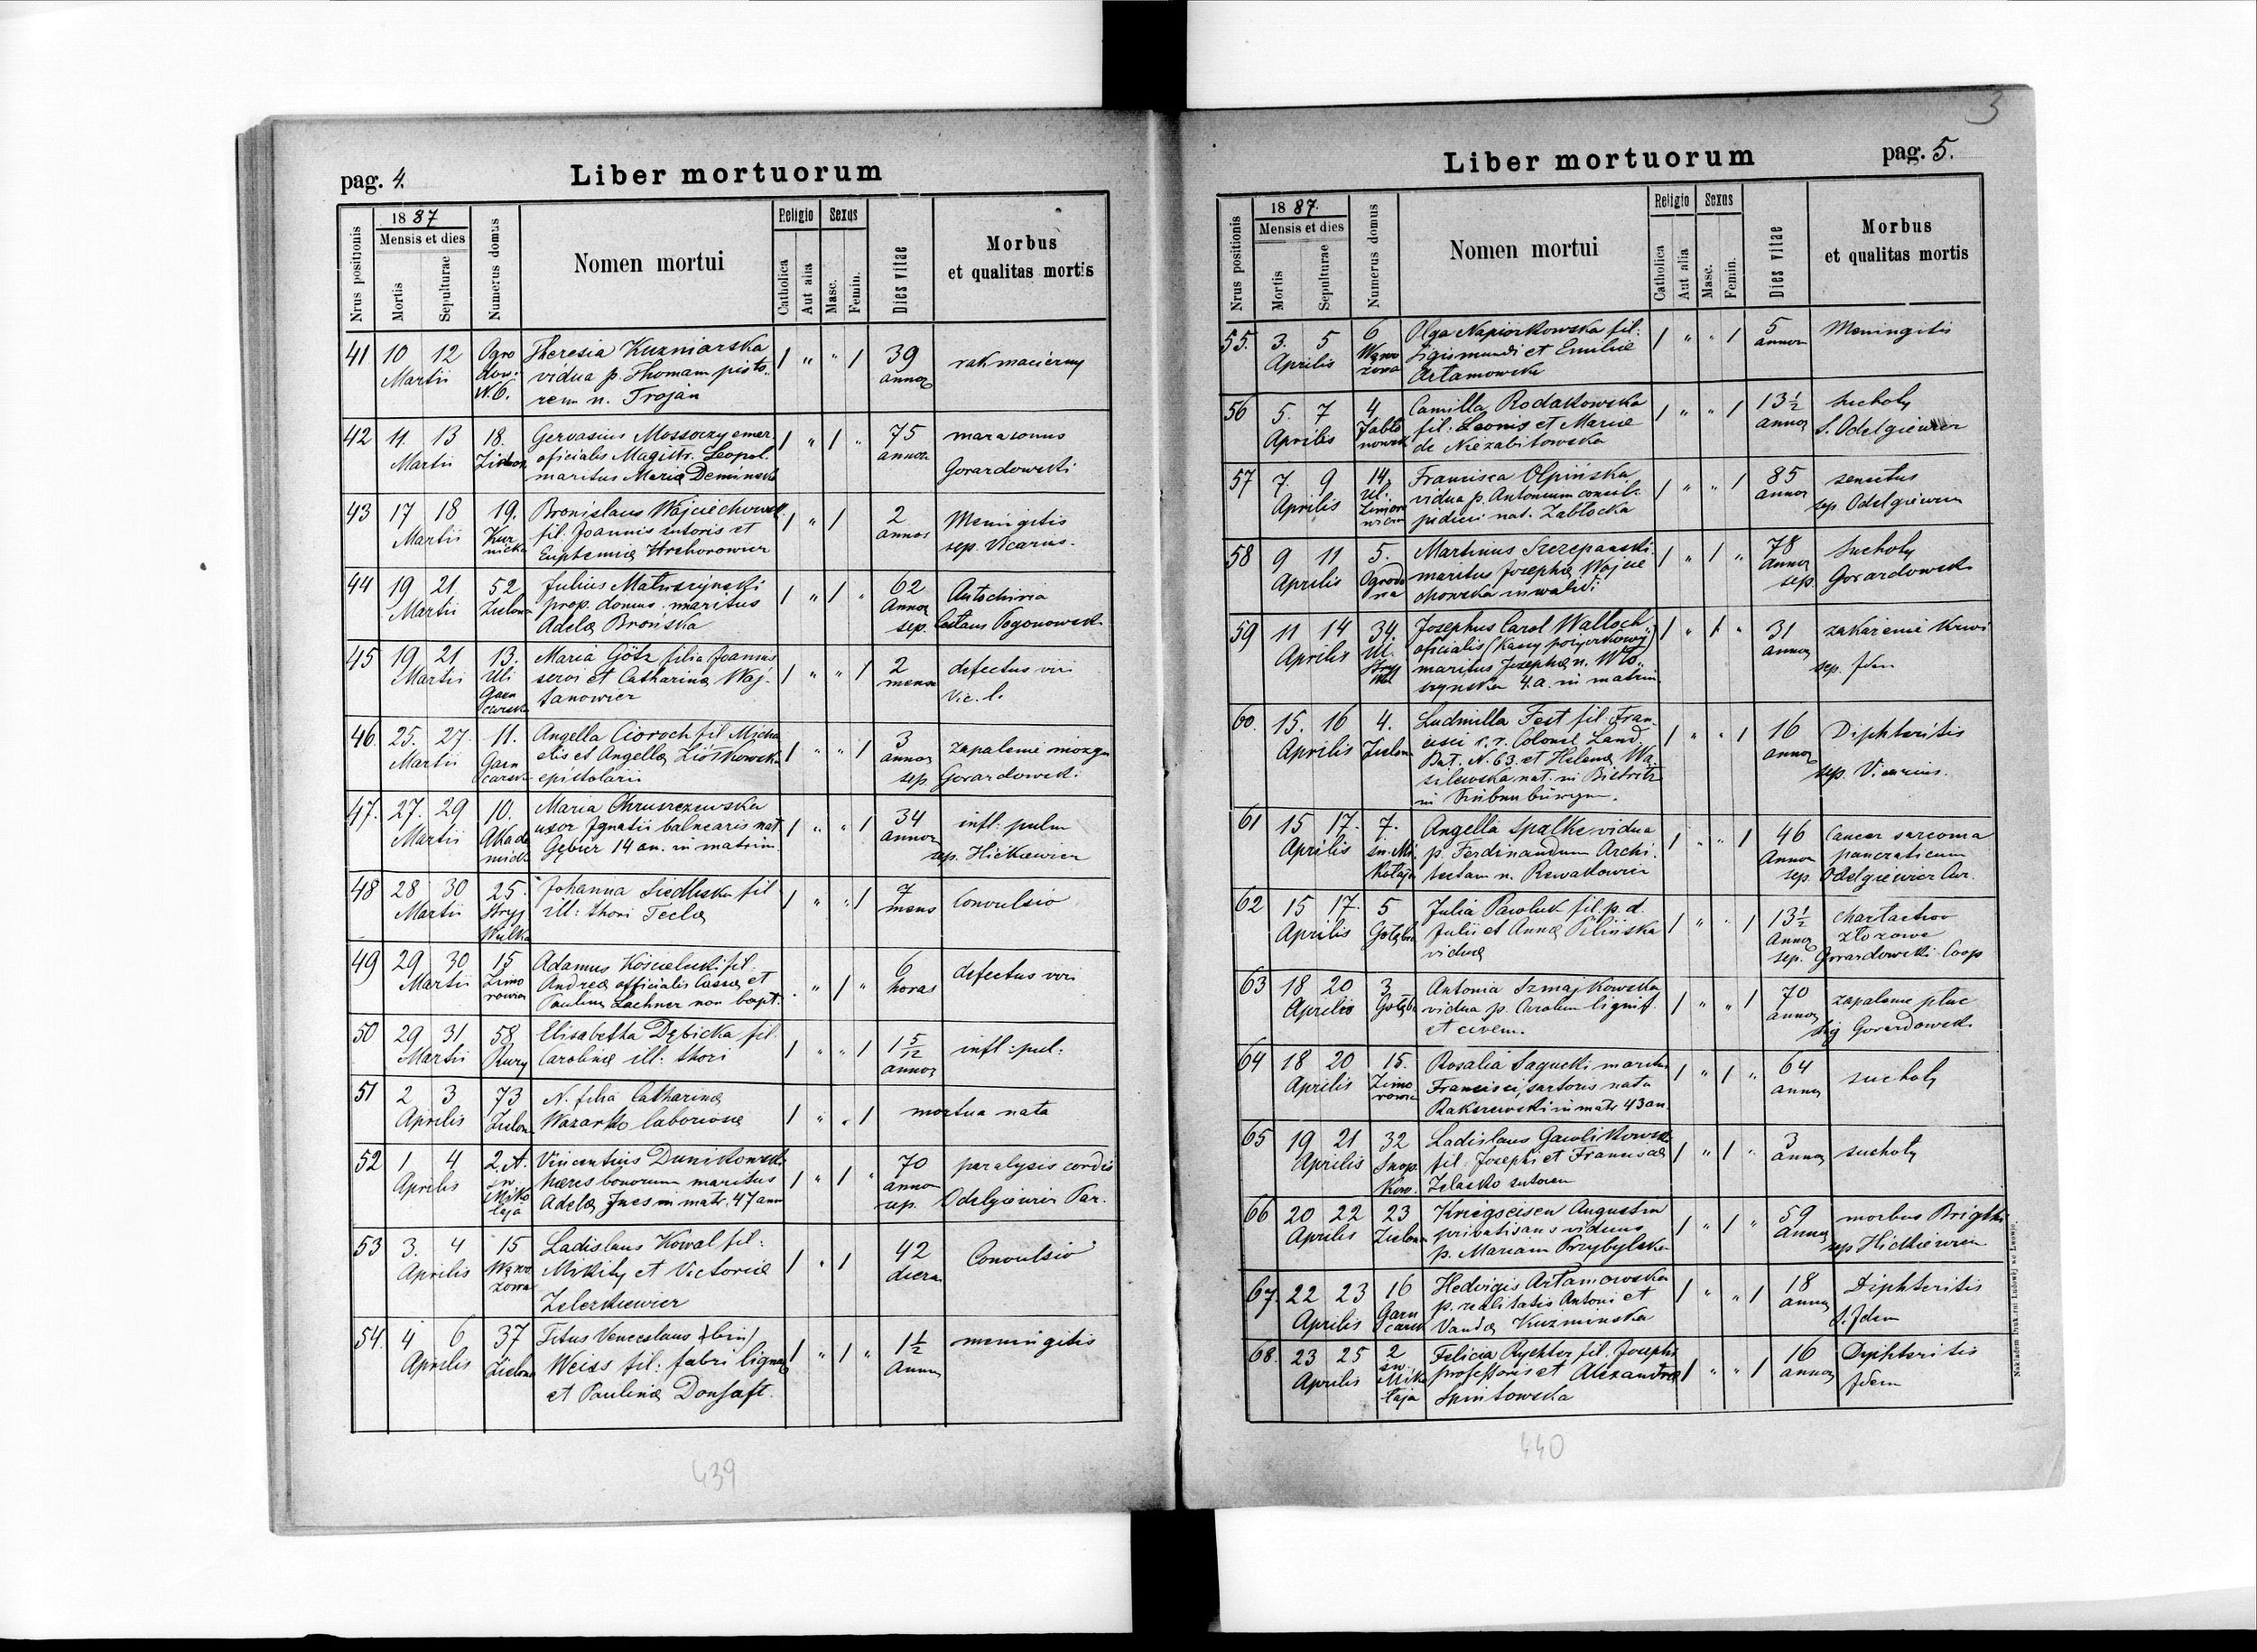 pag. 4.
Liber mortuorum
Nrus positionis
1887
Mensis et dies
Mortis
Sepulturae
Numerus domus
Nomen mortui
Religio
Catholica
Aut alia
Sexus
Masc.
Femin.
Dies vitae
Morbus
et qualitas mortis
41 10 12 Martii
Ogro
dow.
N. 6.
Theresia Kuzniarska
vidua p. Thomam pisto-
rem n. Trojan
39 annos
rak macierzy
42 11. 13 Martii
18.
Gervasius Mossoczy emer.
oficialis Magistr. Leopol.
maritus Mariæ Demińsch
75 annos
marasmus
Gorardowski
43 17 18 Martii
19.
Kur
nicka
Bronislaus Wojciechowsk
fil: Joannis sutoris et
Euphemiæ Hrehorowicz
2 annos
Meningitis
sep. Vicarius.
44 19 21 Martii
52
Zielona
Julius Matuszynski
prop. domus. maritus
Adelæ Brońska
62 Annos
Autochiria
sep.
45 19 21 Martii
13.
Uli
Garn
carsk
Maria Götz filia Joannis
servi et Catharinæ Waj-
tanowicz
2 mens
defectus viri
Vic. l.
46. 25. 27. Martii
11.
Garn
carsk
Angella Cioroch fil Micha
elis et Angellæ Ziółkowska
epistolarii
3 annos
zapalenie mózgu
sep Gorardowski
47. 27. 29 Martii
10.
Akade
mick
Maria Chruszczewska
uxor Ignatii balnearis nat.
14 an. in matrim
34 annos
infl: pulm
sep. Hickiewicz
48 28 30 Martii
25.
Stryj
Wulka
Johanna Siedliska fil
ill: thori Teclæ
7 mens
Convulsio
49 29 30 Martii
15
Zimo
rowicz
Adamus Koscielecki fil.
Andreæ officialis Cassæ et
Paulinæ Lachner non bapt.
6 horas
defectus viri
50 29 31 Martii
58
Rury
Elisabetha Dębicka fil.
Carolinæ ill: thori
1 5/12 annos
infl: pul:
51 2 3 Aprilis
73
Zielon
N. filia Catharinæ
Wazarko laboriosæ
mortua nata
52 1 4 Aprilis
2 A.
św.
Miko
łaja
Vincentius Dunikowski
hæres bonorum maritus
Adelæ Ines in matr. 47 ann
70 annos
paralysis cordis
sep. Odelgiewicz Par.
53 3. 4 Aprilis
15
Wąwo
zowa
Ladislaus Kowal fil:
Mikity et Victoriæ
Zelezkiewicz
42 dierum
Convulsio
54. 4 6 Aprilis
37
Zielona
Titus Venceslaus (bin)
Weiss fil: fabri lignar
et Paulinæ Donsaft.
1 1/2 Annu
meningitis
439
3
Liber mortuorum
pag. 5.
Nrus positionis
1887.
Mensis et dies
Mortis
Sepulturae
Numerus domus
Nomen mortui
Religio
Catholica
Aut alia
Sexus
Masc.
Femin.
Dies vitae
Morbus
et qualitas mortis
55. 3. 5 Aprilis
6
Wąwo
zowa
Olga Napiorkowska fil:
Sigismundi et Emiliæ
Artamowska
5 annor
Meningitis
56 5. 7 Aprilis
4
Jabło
nowsk
Camilla Rodakowska
fil: Leonis et Mariæ
de Niezabitowska
13 1/2 annos
suchoty
S. Odelgiewicz
57 7. 9 Aprilis
14.
Ul.
Zimoro
wicza
Francisca Olpińska
vidua p. Antonium consil.
judicii nat. Zabłocka
85 annor
senectus
sep. Odelgiewicz
58 9 11 Aprilis
5.
Ogrodo
wa
Martinus Szczepanski
maritus Josephæ Wojcie
chowska inwalidi
78 Annor
Suchoty
sep Gorardowski
59 11 14 Aprilis
34.
Ul.
Stryj
ska
Josephus Carol Walloch
oficialis (Kasy pożyczkowej)
maritus Josephæ n. Wło-
szynska 4. a. in matrim
31 annos
zakażenie krwi
sep. Idem
60. 15. 16 Aprilis
4.
Zielon
Ludmilla Fest fil. Fran-
cisci c. r. Colonel Land.
Bat. N. 63. et Helenæ Wa-
silewska nat. in Bistritz
in Siebenbürgen.
16 annos
Diphteritis
sep. Vicarius.
61 15 17. Aprilis
7.
św. Mi
kołaja
Angella Spalke vidua
p. Ferdinandum Archi-
tectam n. Rewakowicz
46 Annos
Cancer sarcoma
pancraticum
sep. Odelgiewicz Cur.
62 15 17. Aprilis
5
Gołębia
Julia Pawluk fil. p. d.
Julii et Annæ Pilińska
viduæ
13 1/2 Annos
sep. Gorardowski Coop
63 18 20 Aprilis
3
Gołębia
Antonia Szmajkowska
vidua p. Carolum lignif.
et civem.
70 annos
zapalenie płuc
Gorardowski
64 18 20 Aprilis
15.
Zimo
rowicz
Rosalia Sagucki marita
Francisci, sartoris nata
Rakszewski in matr 43 an.
64 annos
suchoty
65 19 21 Aprilis
32
Snop
kow.
Ladislaus Gawlikowsk
fil. Josephi et Franciscæ
Zelasko sutorum
3 annos
suchoty
66 20 22 Aprilis
23
Zielona
Kriegseisen Augustin
privatisans viduus
p. Mariam Przybylska
59 Annos
morbus Brigthi
sep Hickiewicz
67. 22 23 Aprilis
16
Garn
carsk
Hedvigis Artamowska
p. realitatis Antoni et
Vandæ Kuzminska
18 annos
Diphteritis
S. Idem
68. 23 25 Aprilis
2
św.
Miko
łaja
Felicia Rychter fil. Josephi
professoris et Alexandræ
Spintowska
16 annos
Dyphteritis
Idem
Nakładem Drukarni Ludowej we Lwowie.
440